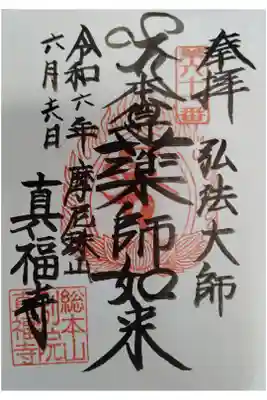 奉拝 弘法大師
本尊薬師如来
令和六年 摩尼珠山
六月 日
真福寺
総本山
別院
真福寺